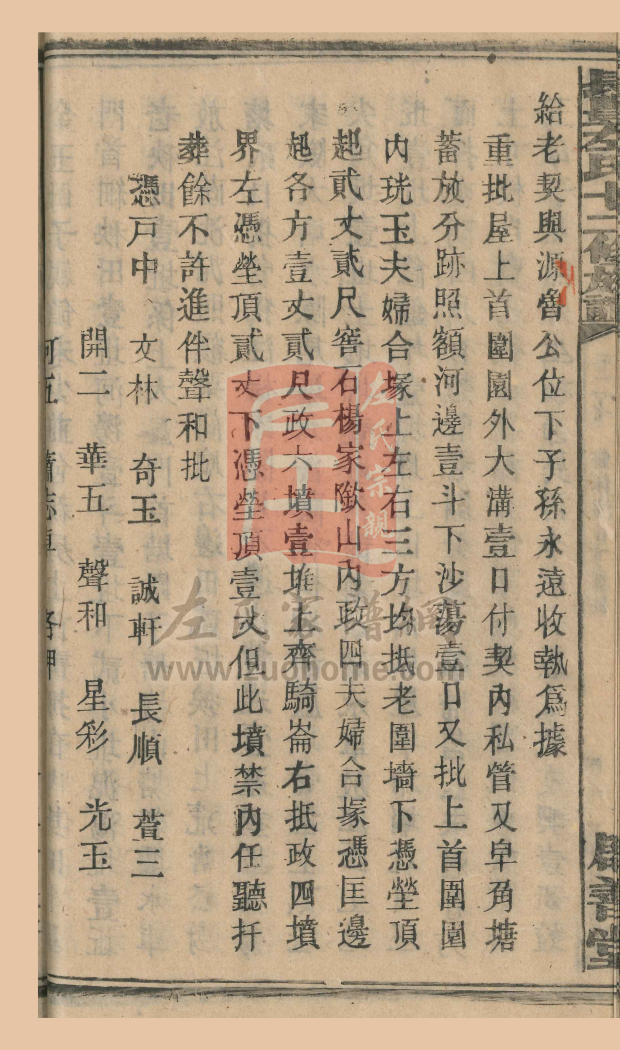 給老契與源魯公位下子孫永遠收執爲據
重批屋上首圍園外大溝壹口付契內私管又皁角塘
蓄放分跡照額河邊壹斗下沙蕩壹口又批上首圍園
內珖玉夫婦合塚上左右三方均抵老圍墻下憑塋頂
起貳丈貳尺窖石楊家山內政四夫婦合塚憑匡邊
起各方壹丈貳尺政六墳壹堆上齊騎崙右抵政四墳
界左憑塋頂貳丈下憑塋頂壹丈但此墳禁內任聽扦
葬餘不許進伴聲和批
憑戶中 文林 奇玉 誠軒 長順 萱三
開二 華五 聲和 星彩 光玉
左氏宗親
左氏家譜網
www.zuohome.com